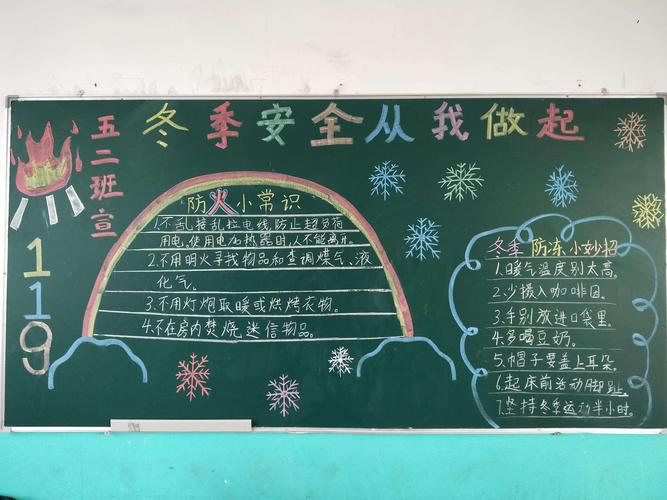 冬季安全从我做起
五二班宣
119
防火小常识
1.不乱接乱拉电线,防止超负荷
用电,使用电加热器时,人不能离开。
2.不用明火寻找物品和查调煤气、液
化气。
3.不用灯炮取暖或烘烤衣物。
4.不在房内焚烧迷信物品。
冬季 防冻小妙招
1.暖气温度别太高。
2.少摄入咖啡因。
3.手别放进口袋里。
4.多喝豆奶。
5.帽子要盖上耳朵。
6.起床前活动脚趾。
7.坚持冬季运动半小时。